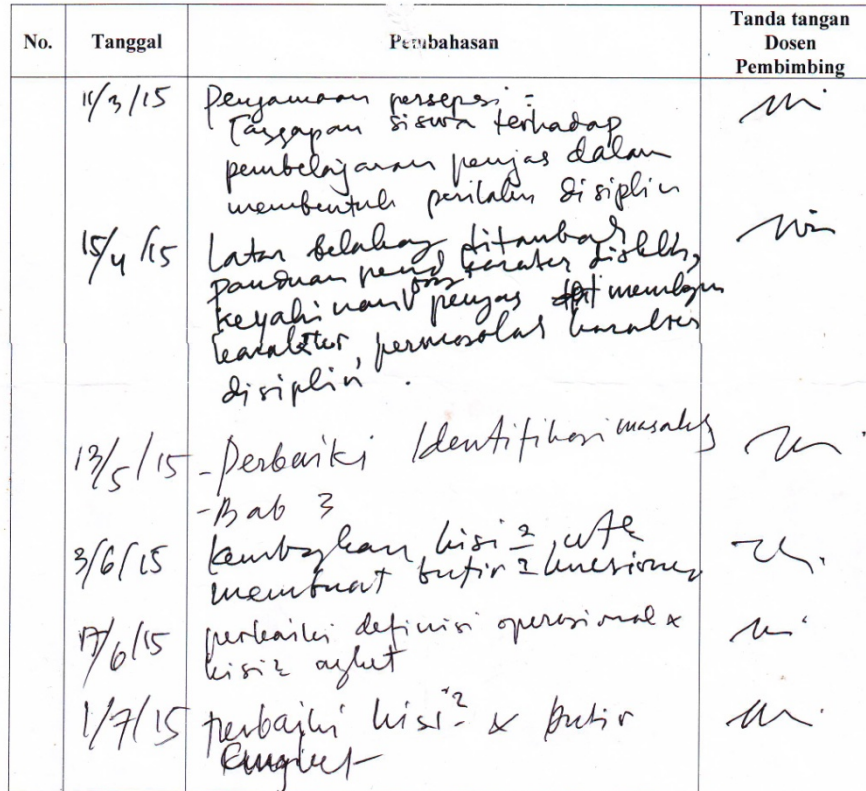 No. Tanggal Pembahasan Tanda tangan
Dosen
Pembimbing
11/3/15 Penyamaan persepsi :
Tanggapan siswa terhadap
pembelajaran penjas dalam
membentuk perilaku disiplin
15/4/15 Latar belakang ditambah
panduan pend karakter
keyakinan penjas dpt
karakter, permasalah karakter
disiplin.
13/5/15 - Perbaiki Identifikasi masalah
- Bab 3
3/6/15 kembangkan kisi2 utk
membuat butir2 kuesioner
17/6/15 perbaiki definisi operasional &
kisi2 angket
1/7/15 perbaiki kisi2 & butir
angket